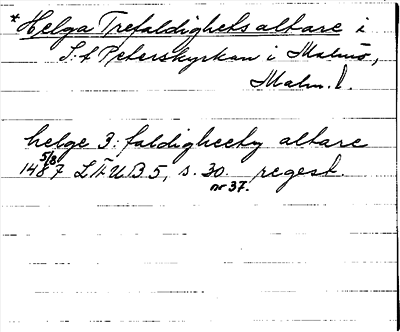 *Helga Trefaldighets altare i
S:t Peterskyrkan i Malmö,
Malm. l.
helge 3: faldigheety altare
5/8
1487 LÄUB 5, s. 30. regest.
nr 37.